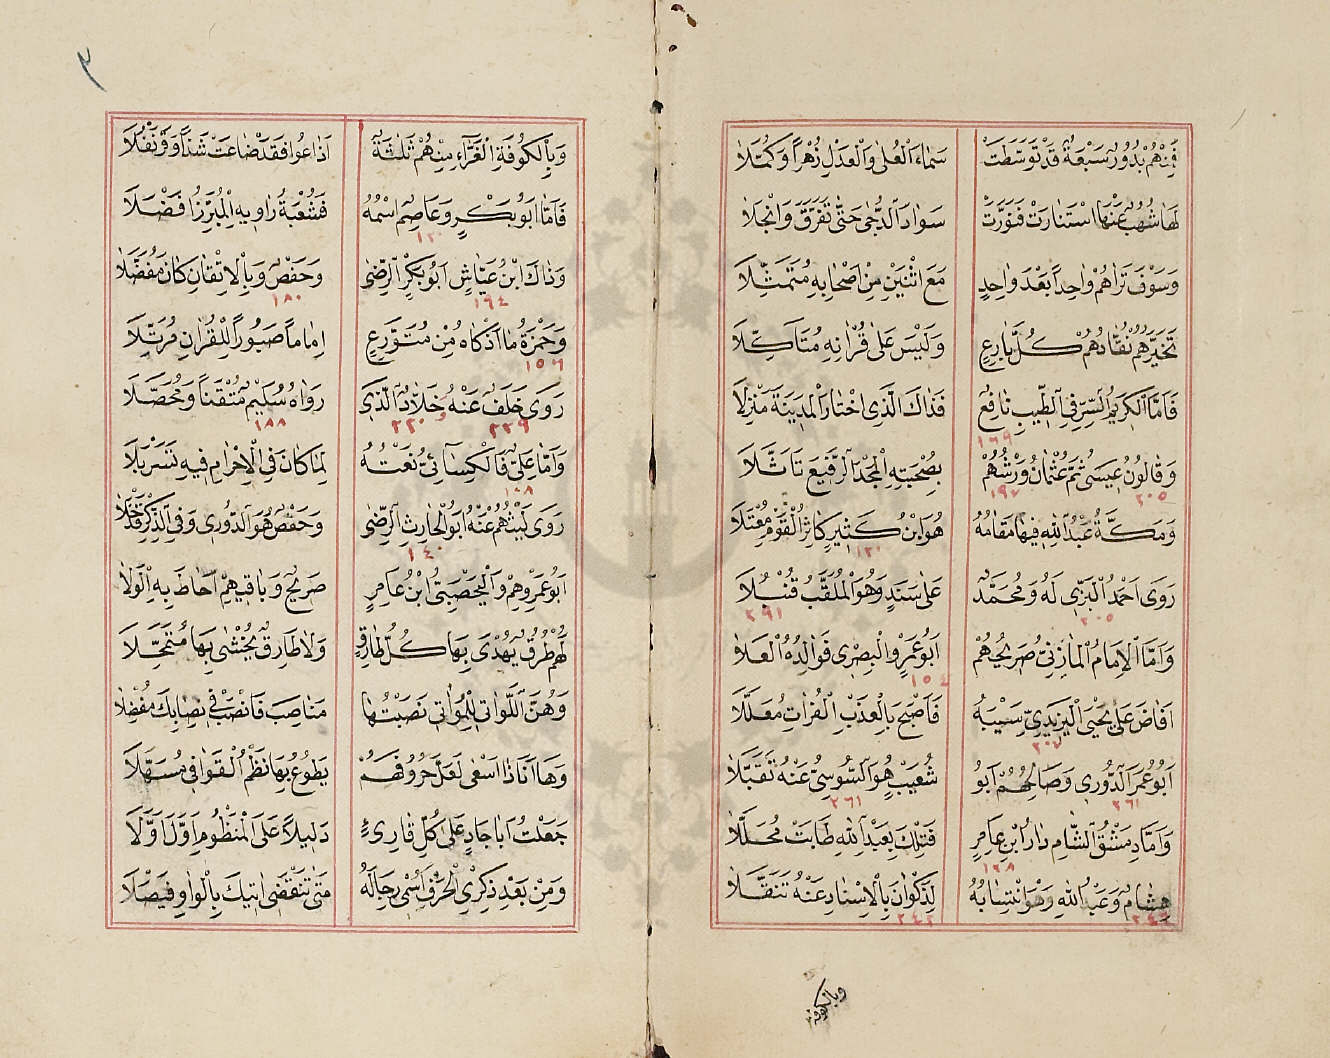 فَمِنْهُمْ بُدُورٌ سَبْعَةٌ قَدْ تَوَسَّطَتْ سَمَاءَ الْعُلٰى وَالْعَدْلِ زُهْرًا وَكُمَّلَا
لَهَا شُهُبٌ عَنْهَا اسْتَنَارَتْ فَنَوَّرَتْ سَوَادَ الدُّجٰى حَتّٰى تَفَرَّقَ وَانْجَلَا
وَسَوْفَ تَرَاهُمْ وَاحِدًا بَعْدَ وَاحِدٍ مَعَ اثْنَيْنِ مِنْ اَصْحَابِهِ مُتَمَثِّلَا
تَخَيَّرَهُمْ نُقَّادُهُمْ كُلَّ بَارِعٍ وَلَيْسَ عَلٰى قُرْاٰنِهِ مُتَاَكِّلَا
فَاَمَّا الْكَرِيمُ السِّرِّ فِي الطِّيبِ نَافِعٌ فَذَاكَ الَّذِي اخْتَارَ الْمَدِينَةَ مَنْزِلَا
١٦٩
وَقَالُونُ عِيسٰى ثُمَّ عُثْمَانُ وَرْشُهُمْ بِصُحْبَتِهِ الْمَجْدَ الرَّفِيعَ تَاَثَّلَا
٢٠٥ ١٩٧
وَمَكَّةُ عَبْدُ اللّٰهِ فِيهَا مَقَامُهُ هُوَ ابْنُ كَثِيرٍ كَاثِرُ الْقَوْمِ مُعْتَلَا
١٢٠
رَوٰى اَحْمَدُ الْبَزِّي لَهُ وَمُحَمَّدٌ عَلٰى سَنَدٍ وَهُوَ الْمُلَقَّبُ قُنْبُلَا
٢٠٥ ٢٩١
وَاَمَّا الْاِمَامُ الْمَازِنِيُّ صَرِيحُهُمْ اَبُو عَمْرٍو الْبَصْرِي فَوَالِدُهُ الْعَلَا
١٥٤
اَفَاضَ عَلٰى يَحْيَى الْيَزِيدِيِّ سَيْبَهُ فَاَصْبَحَ بِالْعَذْبِ الْفُرَاتِ مُعَلَّلَا
٢٠٧
اَبُو عُمَرَ الدُّورِي وَصَالِحُهُمْ اَبُو شُعَيْبٍ هُوَ السُّوسِيُّ عَنْهُ تَقَبَّلَا
٢٦١ ٢٦١
وَاَمَّا دِمَشْقُ الشَّامِ دَارُ ابْنِ عَامِرٍ فَتِلْكَ بِعَبْدِ اللّٰهِ طَابَتْ مُحَلَّلَا
١٦٨
هِشَامٌ وَعَبْدُ اللّٰهِ وَهْوَ انْتِسَابُهُ لِذَكْوَانَ بِالْاِسْنَادِ عَنْهُ تَنَقَّلَا
٢٤٢
وبالكوفة
٣
وَبِالْكُوفَةِ الْغَرَّاءِ مِنْهُمْ ثَلٰثَةٌ اَذَاعُوا فَقَدْ ضَاعَتْ شَذًا وَقَرَنْفُلَا
فَاَمَّا اَبُو بَكْرٍ وَعَاصِمٌ اسْمُهُ فَشُعْبَةُ رَاوِيهِ الْمُبَرِّزُ اَفْضَلَا
وَذَاكَ ابْنُ عَيَّاشٍ اَبُو بَكْرٍ الرِّضٰى وَحَفْصٌ وَبِالْاِتْقَانِ كَانَ مُفَضَّلَا
١٩٤ ١٨٠
وَحَمْزَةُ مَا اَزْكَاهُ مِنْ مُتَوَرِّعٍ اِمَامًا صَبُورًا لِلْقُرَانِ مُرَتِّلَا
١٥٦
رَوٰى خَلَفٌ عَنْهُ وَخَلَّادٌ الَّذِي رَوَاهُ سُلَيْمٌ مُتْقَنًا وَمُحَصَّلَا
٢٢٩ ٢٢٠ ١٨٨
وَاَمَّا عَلِيٌّ فَالْكِسَائِيُّ نَعْتُهُ لِمَا كَانَ فِي الْاِحْرَامِ فِيهِ تَسَرْبَلَا
رَوٰى لَيْثُهُمْ عَنْهُ اَبُو الْحَارِثِ الرِّضٰى وَحَفْصٌ هُوَ الدُّورِي وَفِي الذِّكْرِ قَدْ خَلَا
٢٤٠
اَبُو عَمْرِهِمْ وَالْيَحْصَبِيُّ ابْنُ عَامِرٍ صَرِيحٌ وَبَاقِيهِمْ اَحَاطَ بِهِ الْوَلَا
لَهُمْ طُرُقٌ يُهْدٰى بِهَا كُلُّ طَارِقٍ وَلَا طَارِقٌ يُخْشٰى بِهَا مُتَمَحِّلَا
وَهُنَّ اللَّوَاتِي لِلْمُوَاتِي نَصَبْتُهَا مَنَاصِبَ فَانْصَبْ فِي نِصَابِكَ مُفْضِلَا
وَهَا اَنَا ذَا اَسْعٰى لَعَلَّ حُرُوفَهُمْ يَطُوعُ بِهَا نَظْمُ الْقَوَافِي مُسَهَّلَا
جَعَلْتُ اَبَا جَادٍ عَلٰى كُلِّ قَارِئٍ دَلِيلًا عَلَى الْمَنْظُومِ اَوَّلَ اَوَّلَا
وَمِنْ بَعْدِ ذِكْرِي الْحَرْفَ اُسْمِي رِجَالَهُ مَتٰى تَنْقَضِي اٰتِيكَ بِالْوَاوِ فَيْصَلَا